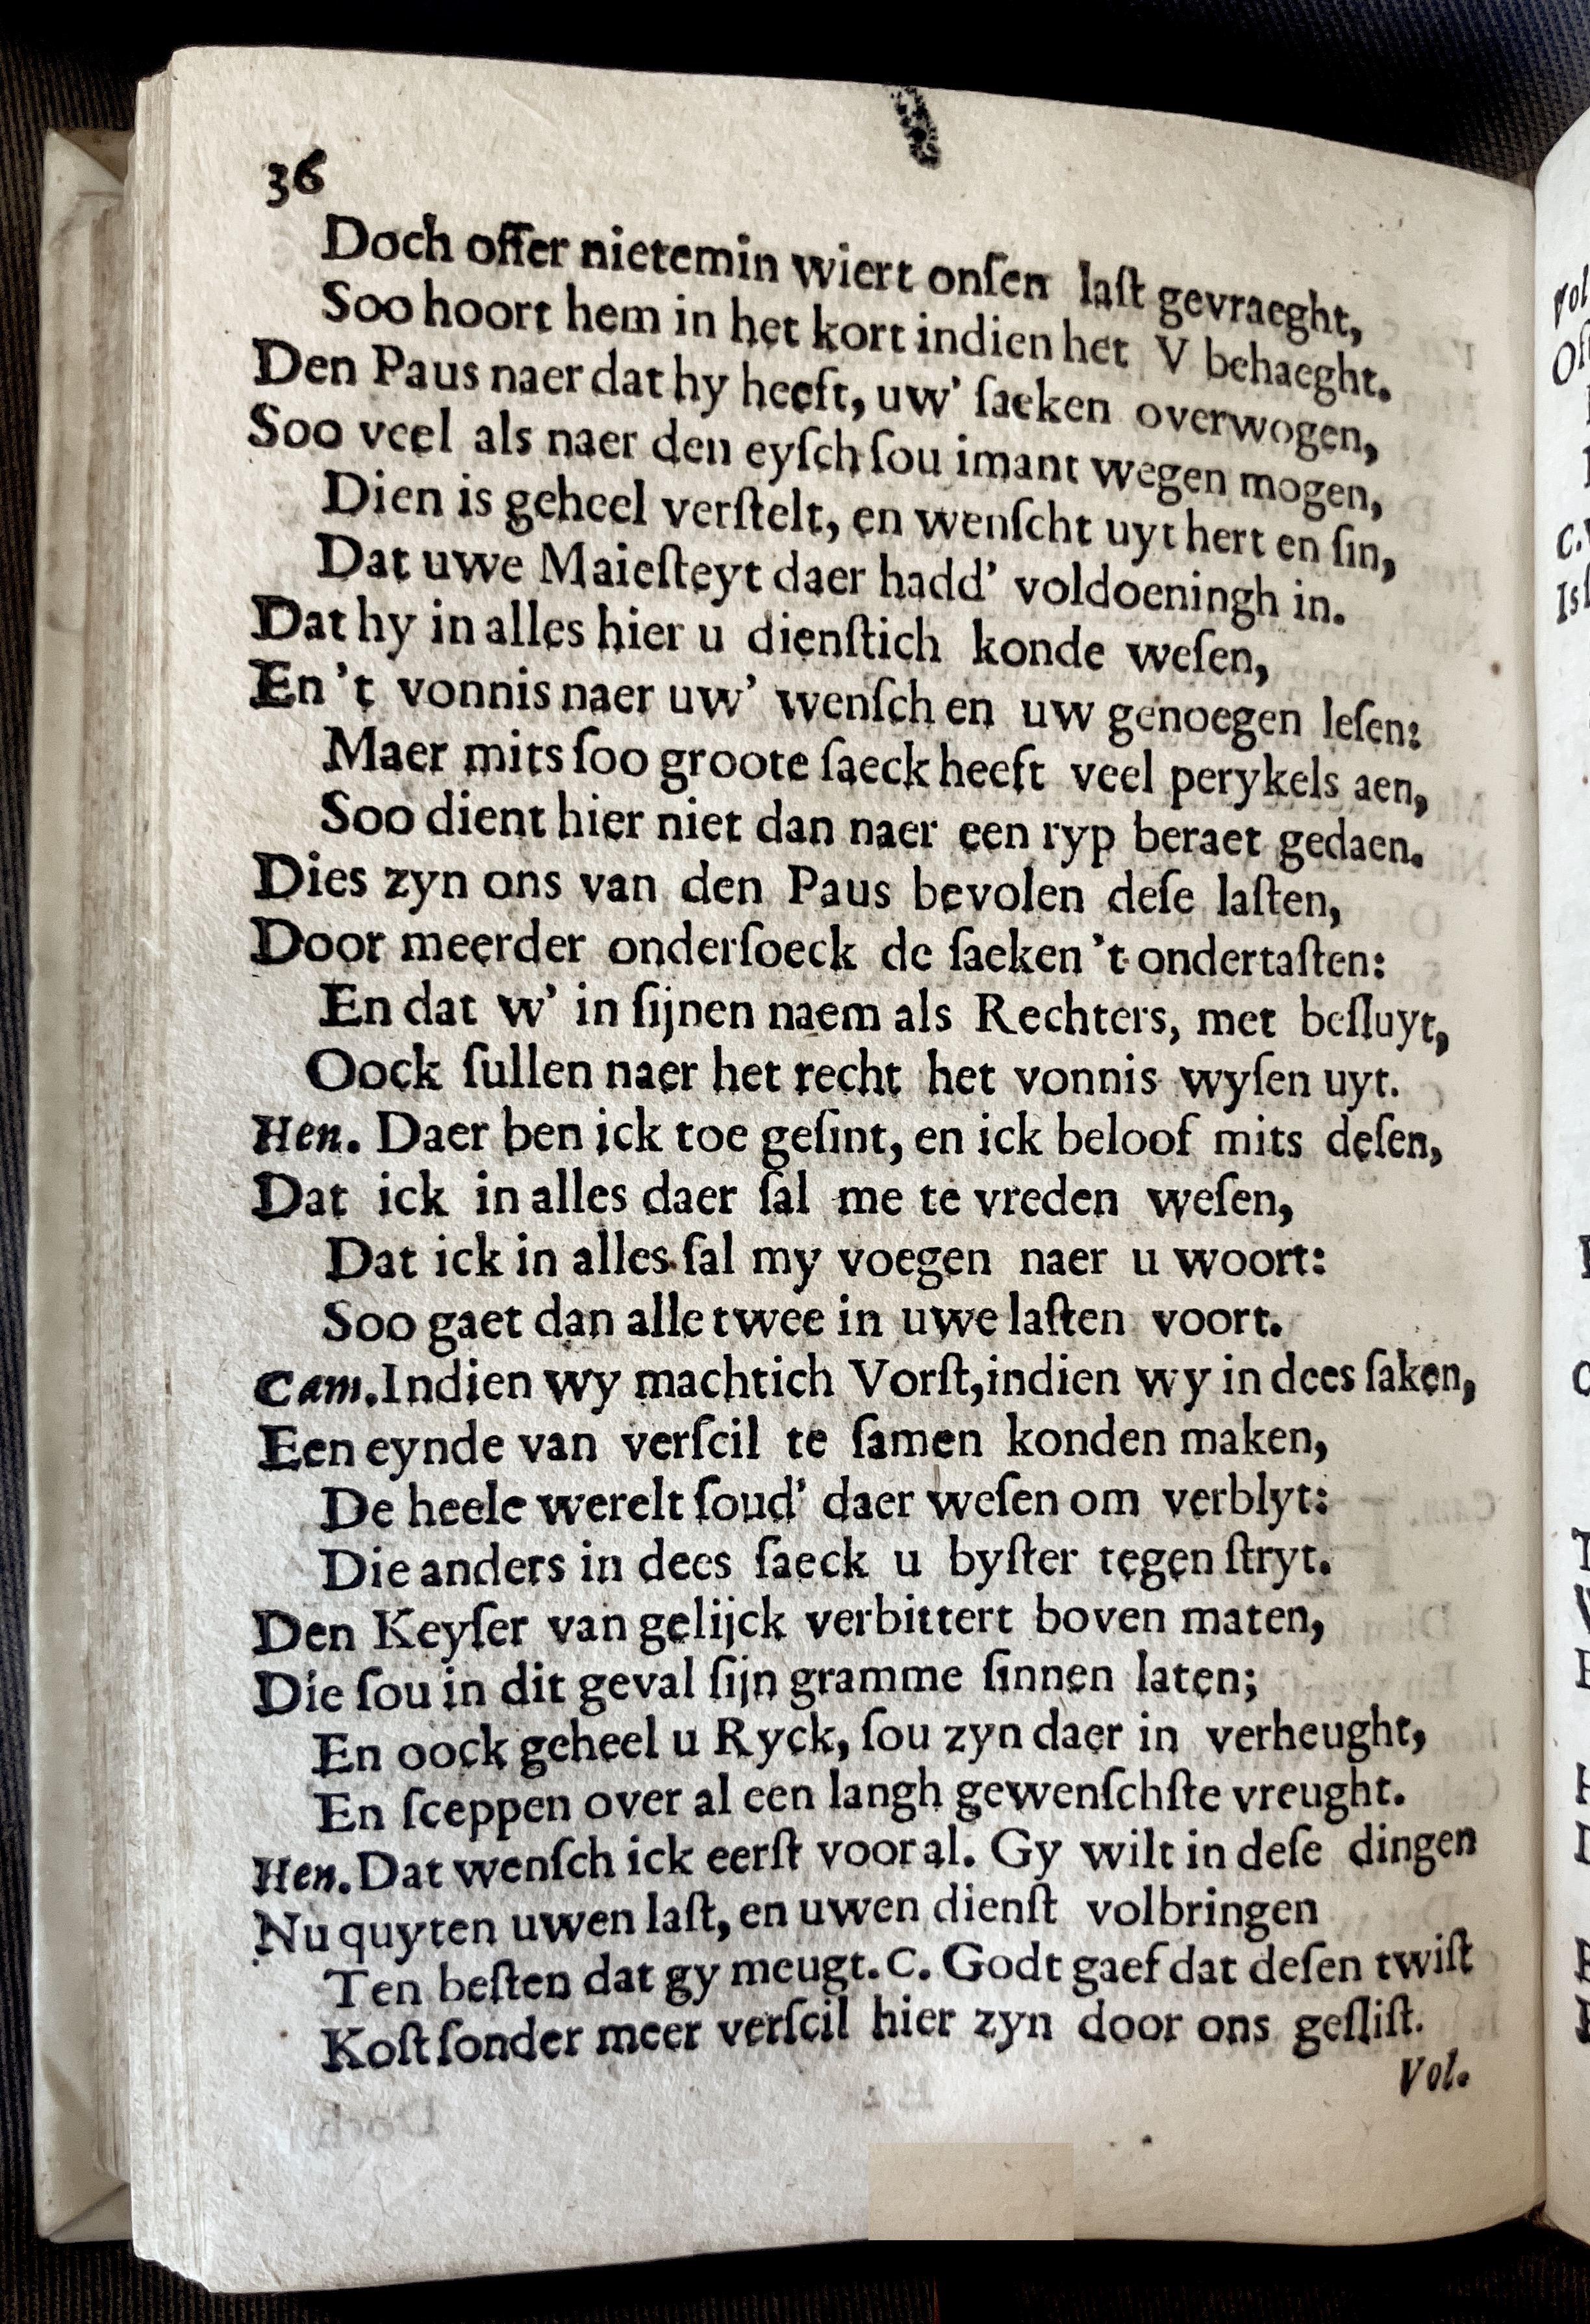 36
Doch offer nietemin wiert onſen laſt gevraeght,
Soo hoort hem in het kort indien het V behaeght.
Den Paus naer dat hy heeft, uw' ſaeken overwogen,
Soo veel als naer den eyſch ſou imant wegen mogen,
Dien is geheel verſtelt, en wenſcht uyt hert en ſin,
Dat uwe Maieſteyt daer hadd' voldoeningh in.
Dat hy in alles hier u dienſtich konde weſen,
En 't vonnis naer uw' wenſch en uw genoegen leſen:
Maer mits ſoo groote ſaeck heeft veel perykels aen,
Soo dient hier niet dan naer een ryp beraet gedaen.
Dies zyn ons van den Paus bevolen deſe laſten,
Door meerder onderſoeck de ſaeken 't ondertaſten:
En dat w' in ſijnen naem als Rechters, met beſluyt,
Oock ſullen naer het recht het vonnis wyſen uyt.
Hen. Daer ben ick toe geſint, en ick beloof mits deſen,
Dat ick in alles daer ſal me te vreden weſen,
Dat ick in alles ſal my voegen naer u woort:
Soo gaet dan alle twee in uwe laſten voort.
Cam. Indien wy machtich Vorſt, indien wy in dees ſaken,
Een eynde van verſcil te ſamen konden maken,
De heele werelt ſoud' daer weſen om verblyt:
Die anders in dees ſaeck u byſter tegen ſtryt.
Den Keyſer van gelijck verbittert boven maten,
Die ſou in dit geval ſijn gramme ſinnen laten;
En oock geheel u Ryck, ſou zyn daer in verheught,
En ſceppen over al een langh gewenſchſte vreught.
Hen. Dat wenſch ick eerſt voor al. Gy wilt in deſe dingen
Nu quyten uwen laſt, en uwen dienſt volbringen
Ten beſten dat gy meugt. C. Godt gaef dat deſen twiſt
Koſt ſonder meer verſcil hier zyn door ons geſliſt.
Vol.